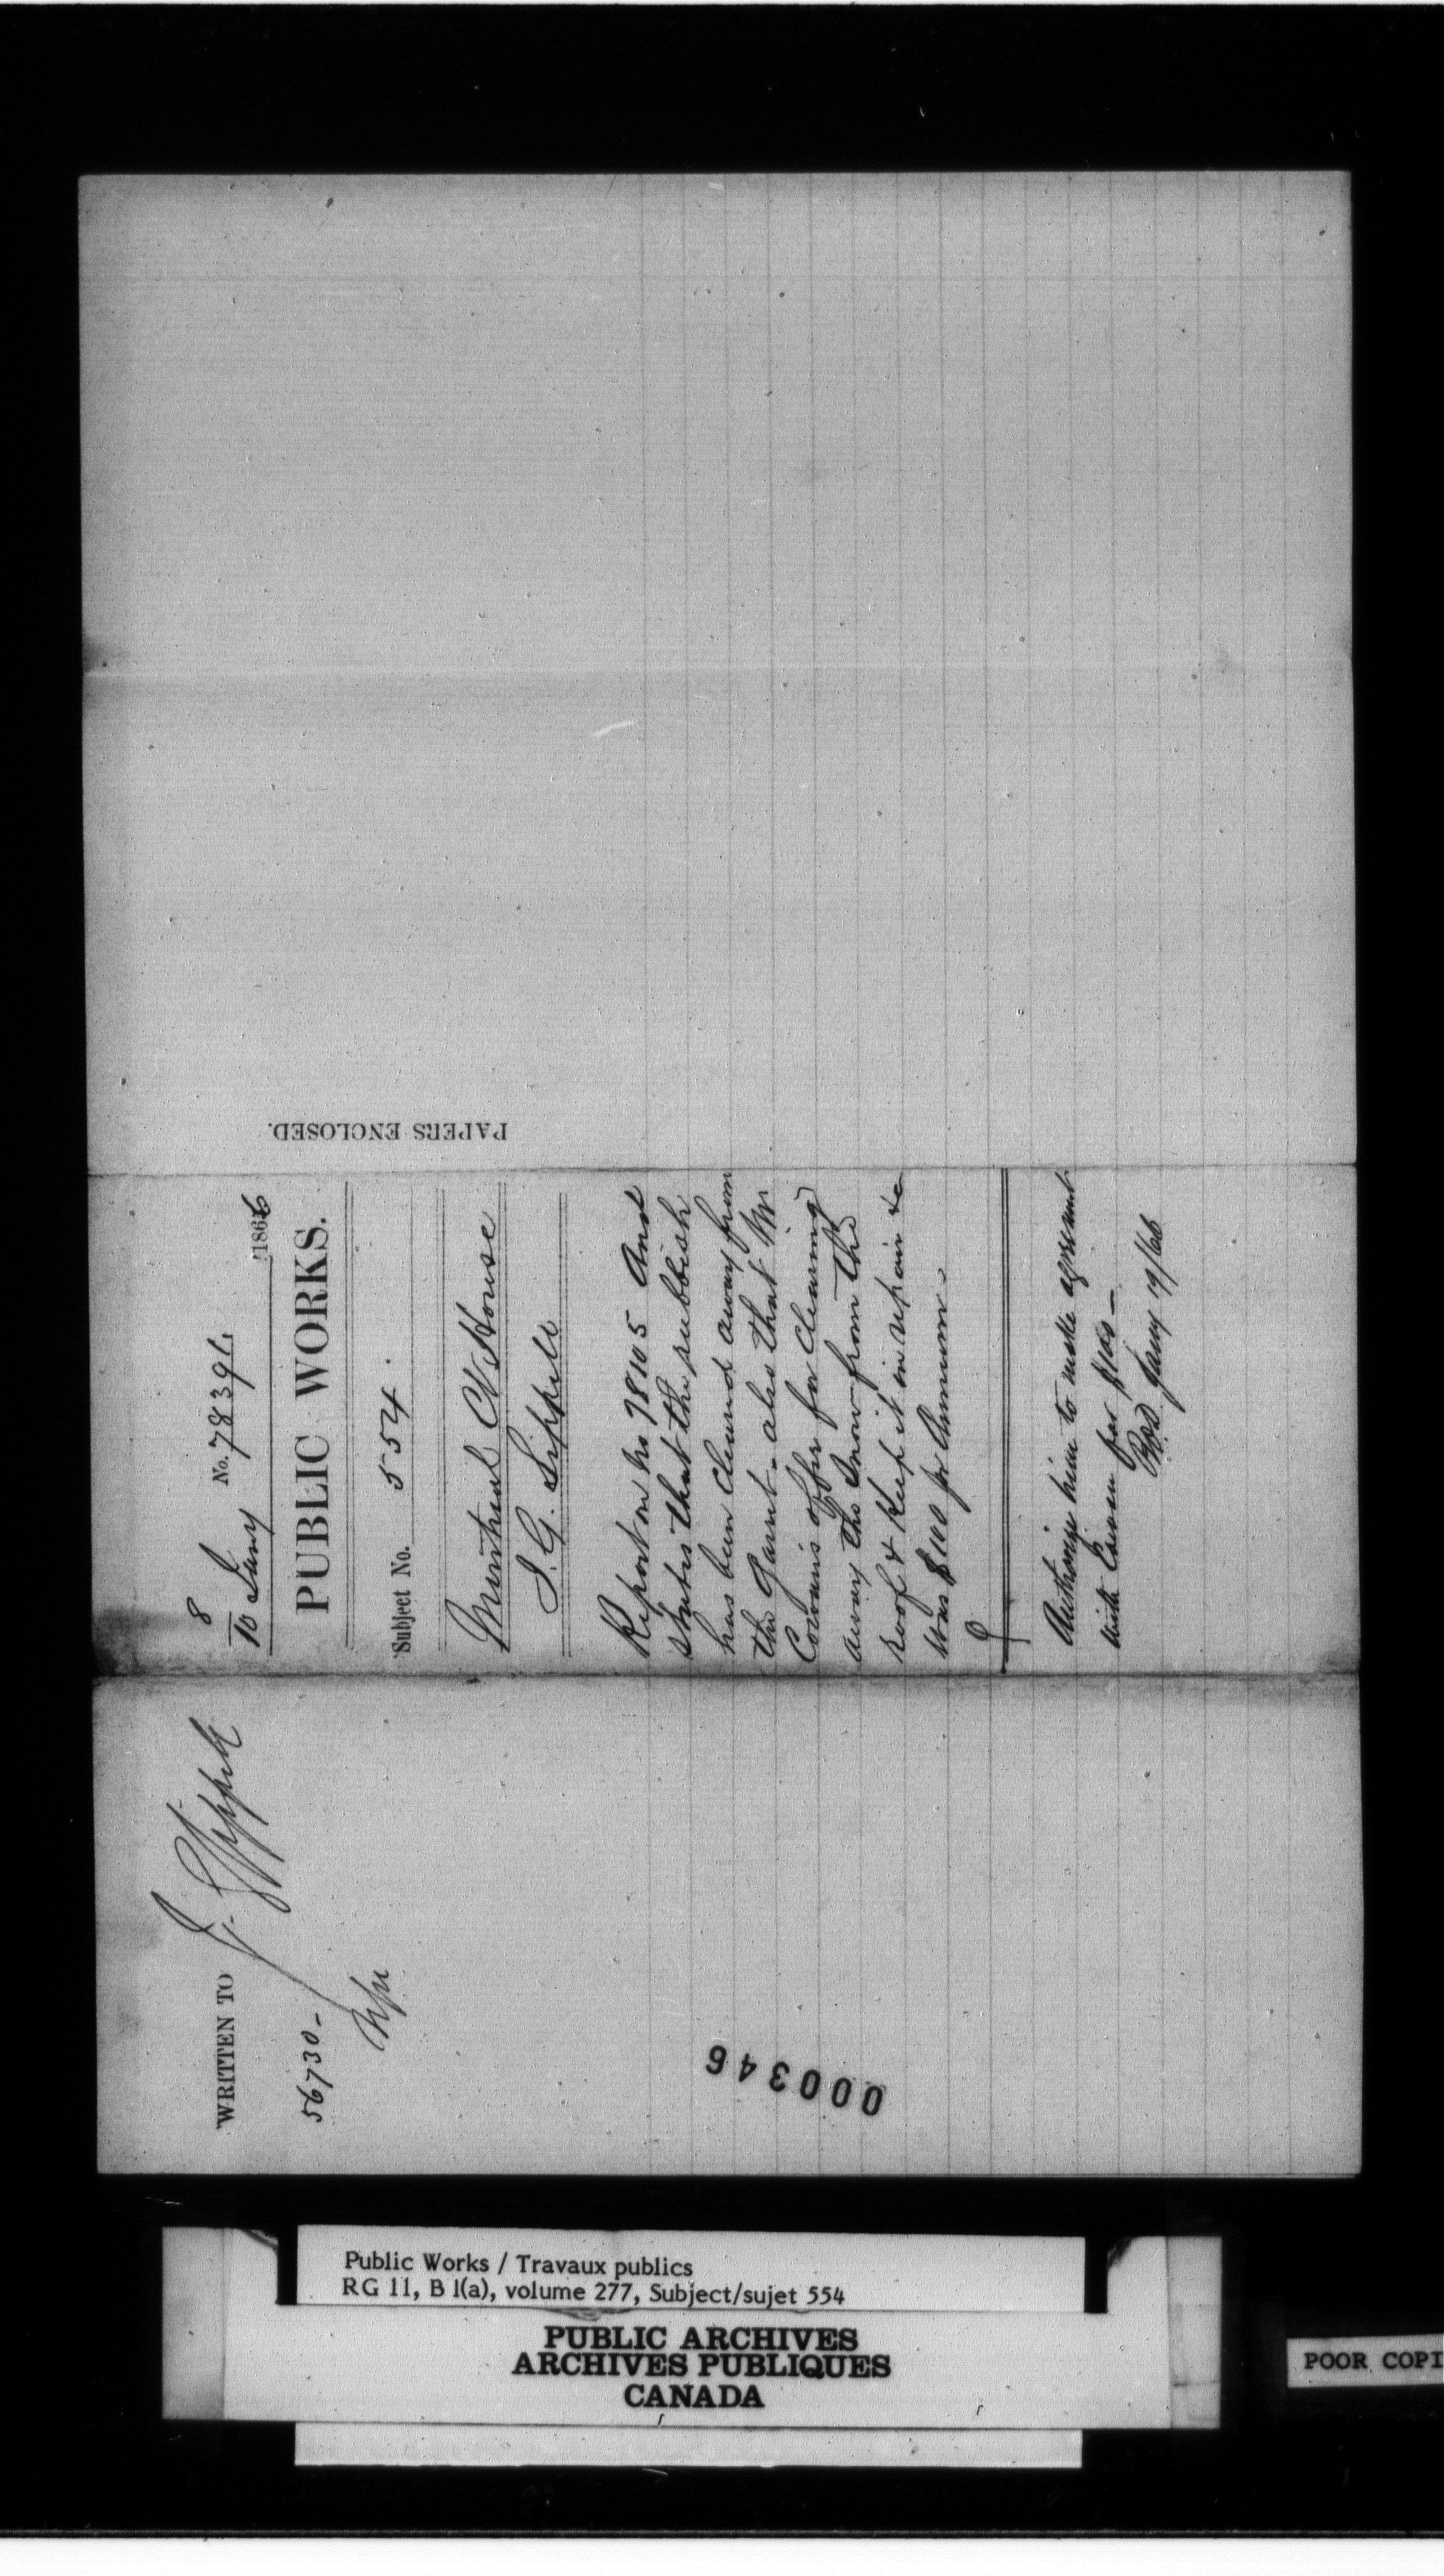 8
10 Jany No. 78396 1866
PUBLIC WORKS.
Subject No. 554.
Montreal Ct House
J. G. Sippell
Report on No 78105 And
states that the rubbish
has been cleared away from
the Garret - also that Mr
Cowan's offer for clearing
away the snow from the
roof & keep it in repair &c
was $100 pr Annum -
Authorize him to make agreement
with Cowan for $100 -
Jany 19/66
PAPERS ENCLOSED.
WRITTEN TO
J. G. Sippell
56730 -
000346
Public Works / Travaux publics
RG 11, B 1(a), volume 277, Subject/sujet 554
PUBLIC ARCHIVES
ARCHIVES PUBLIQUES
CANADA
POOR COPI